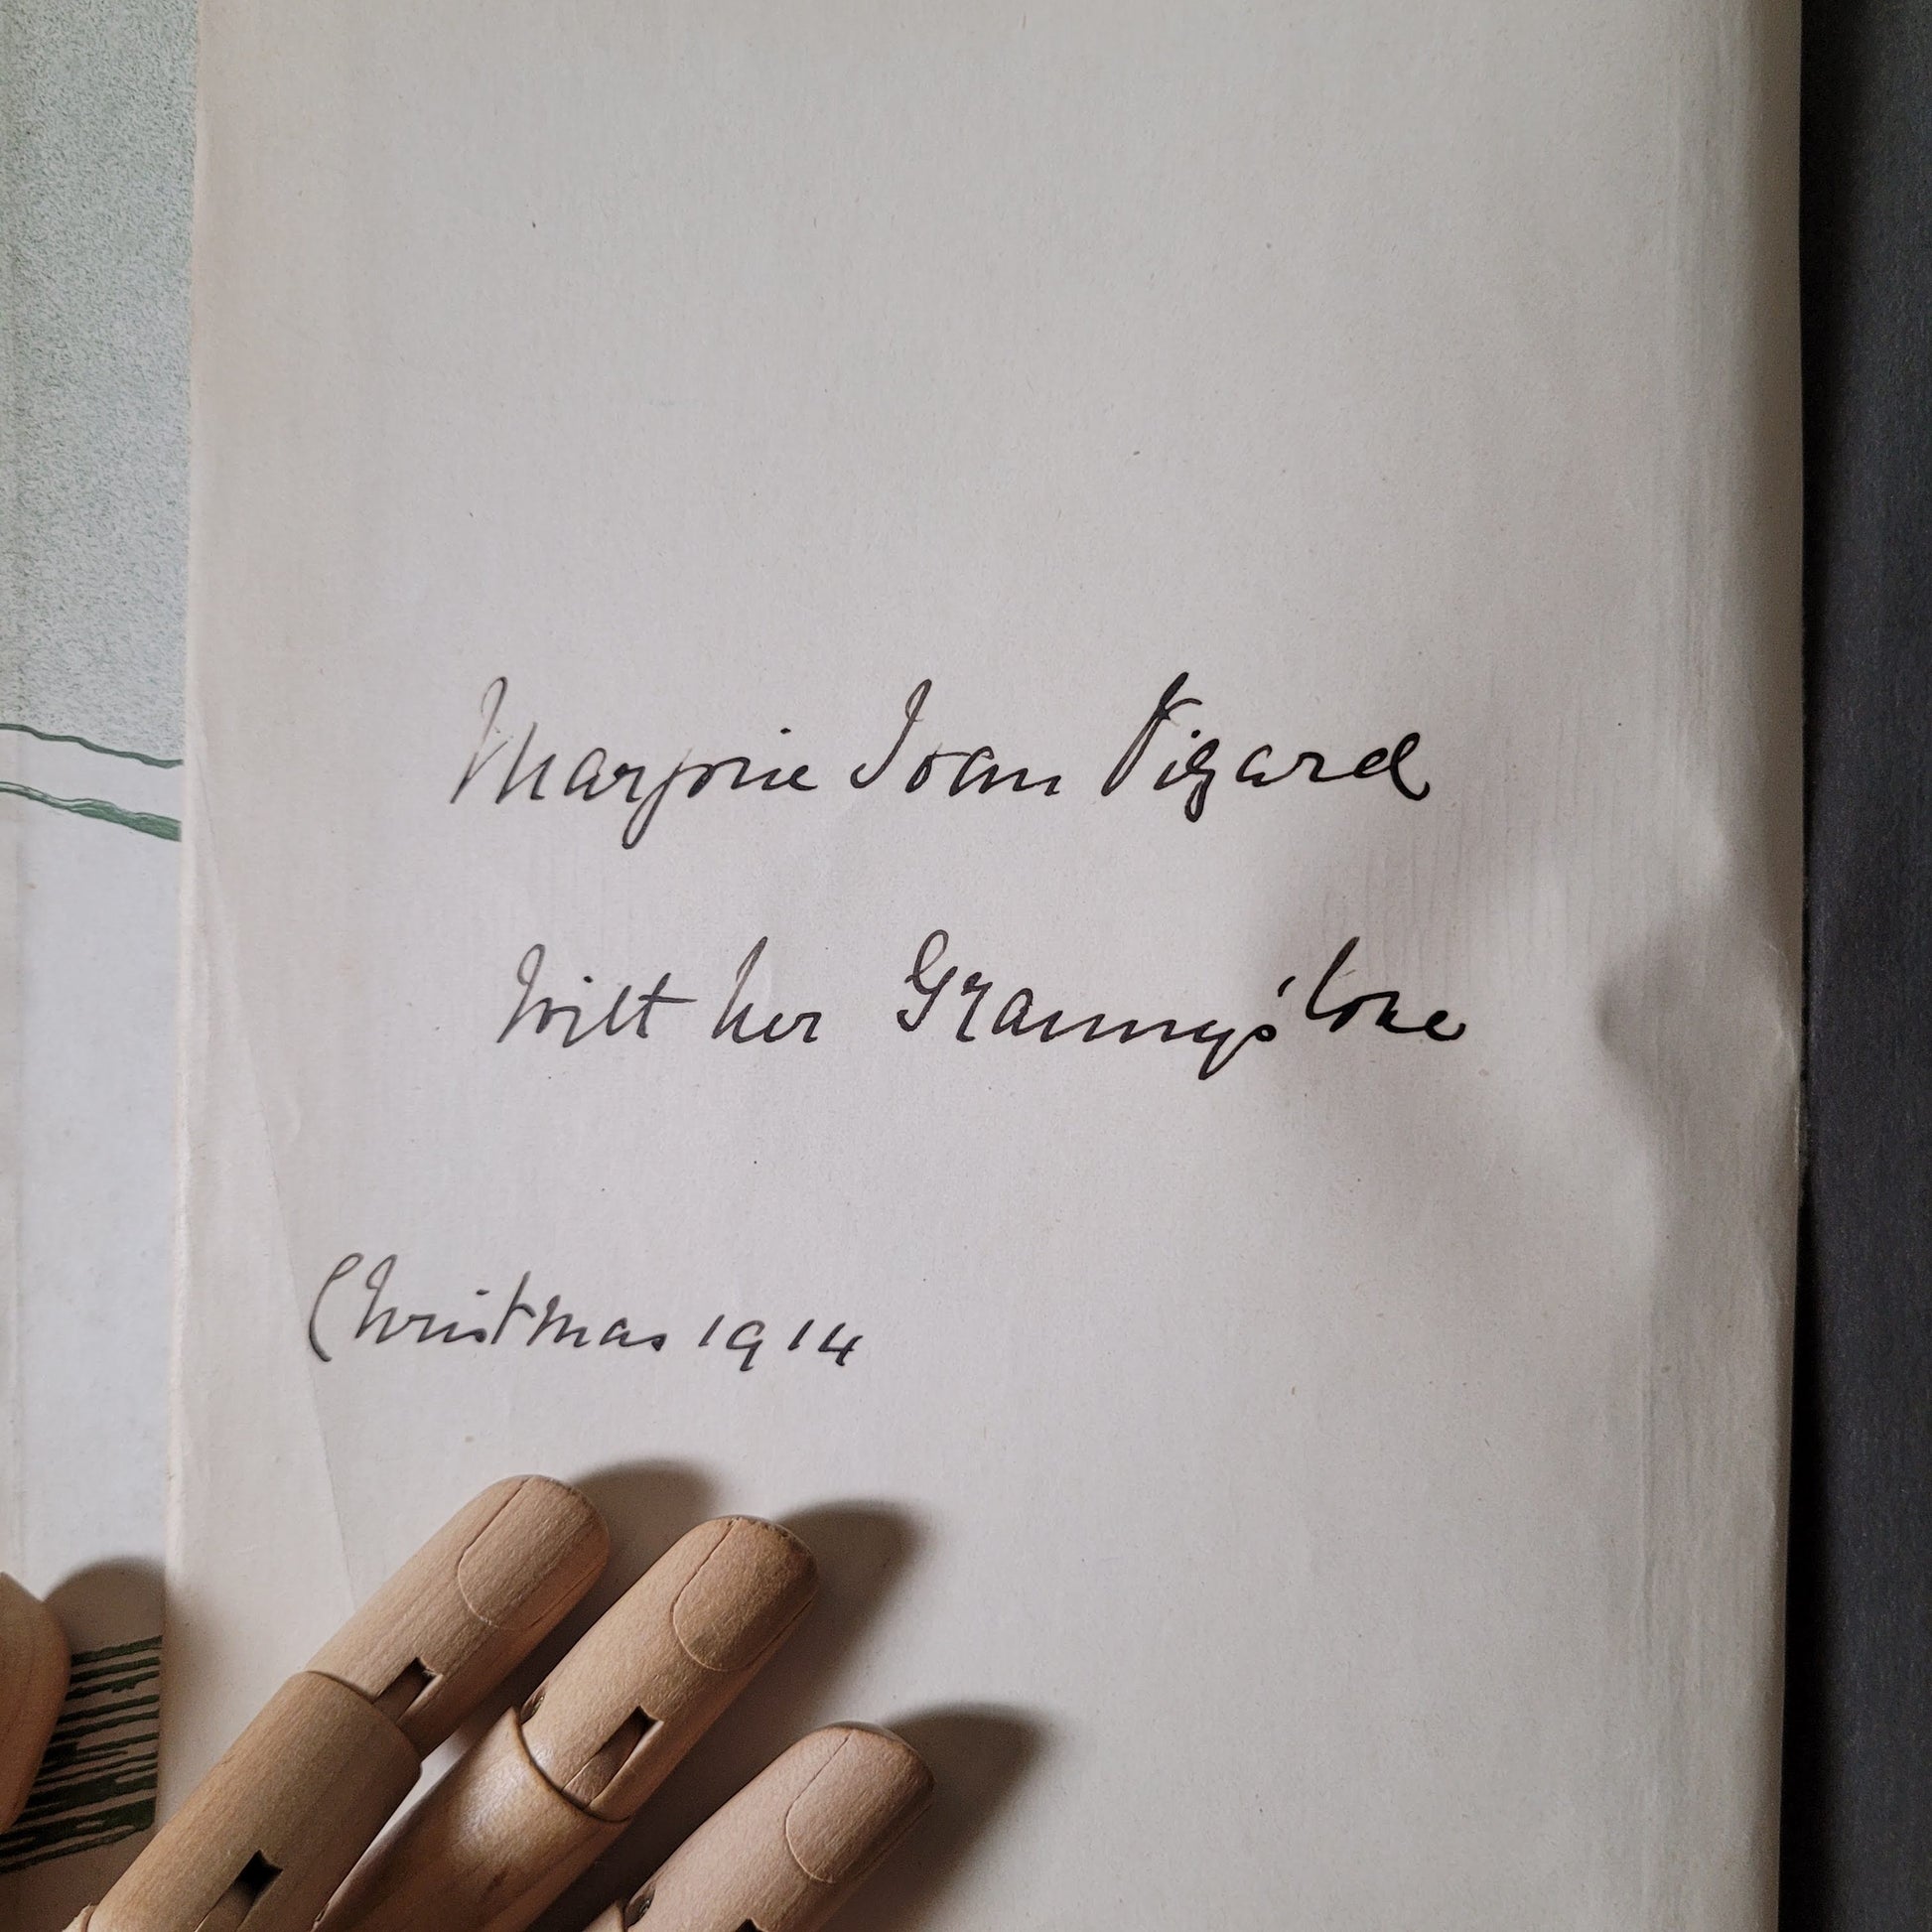 Marjorie Joan Vizard
With her Granny's love
Christmas 1914